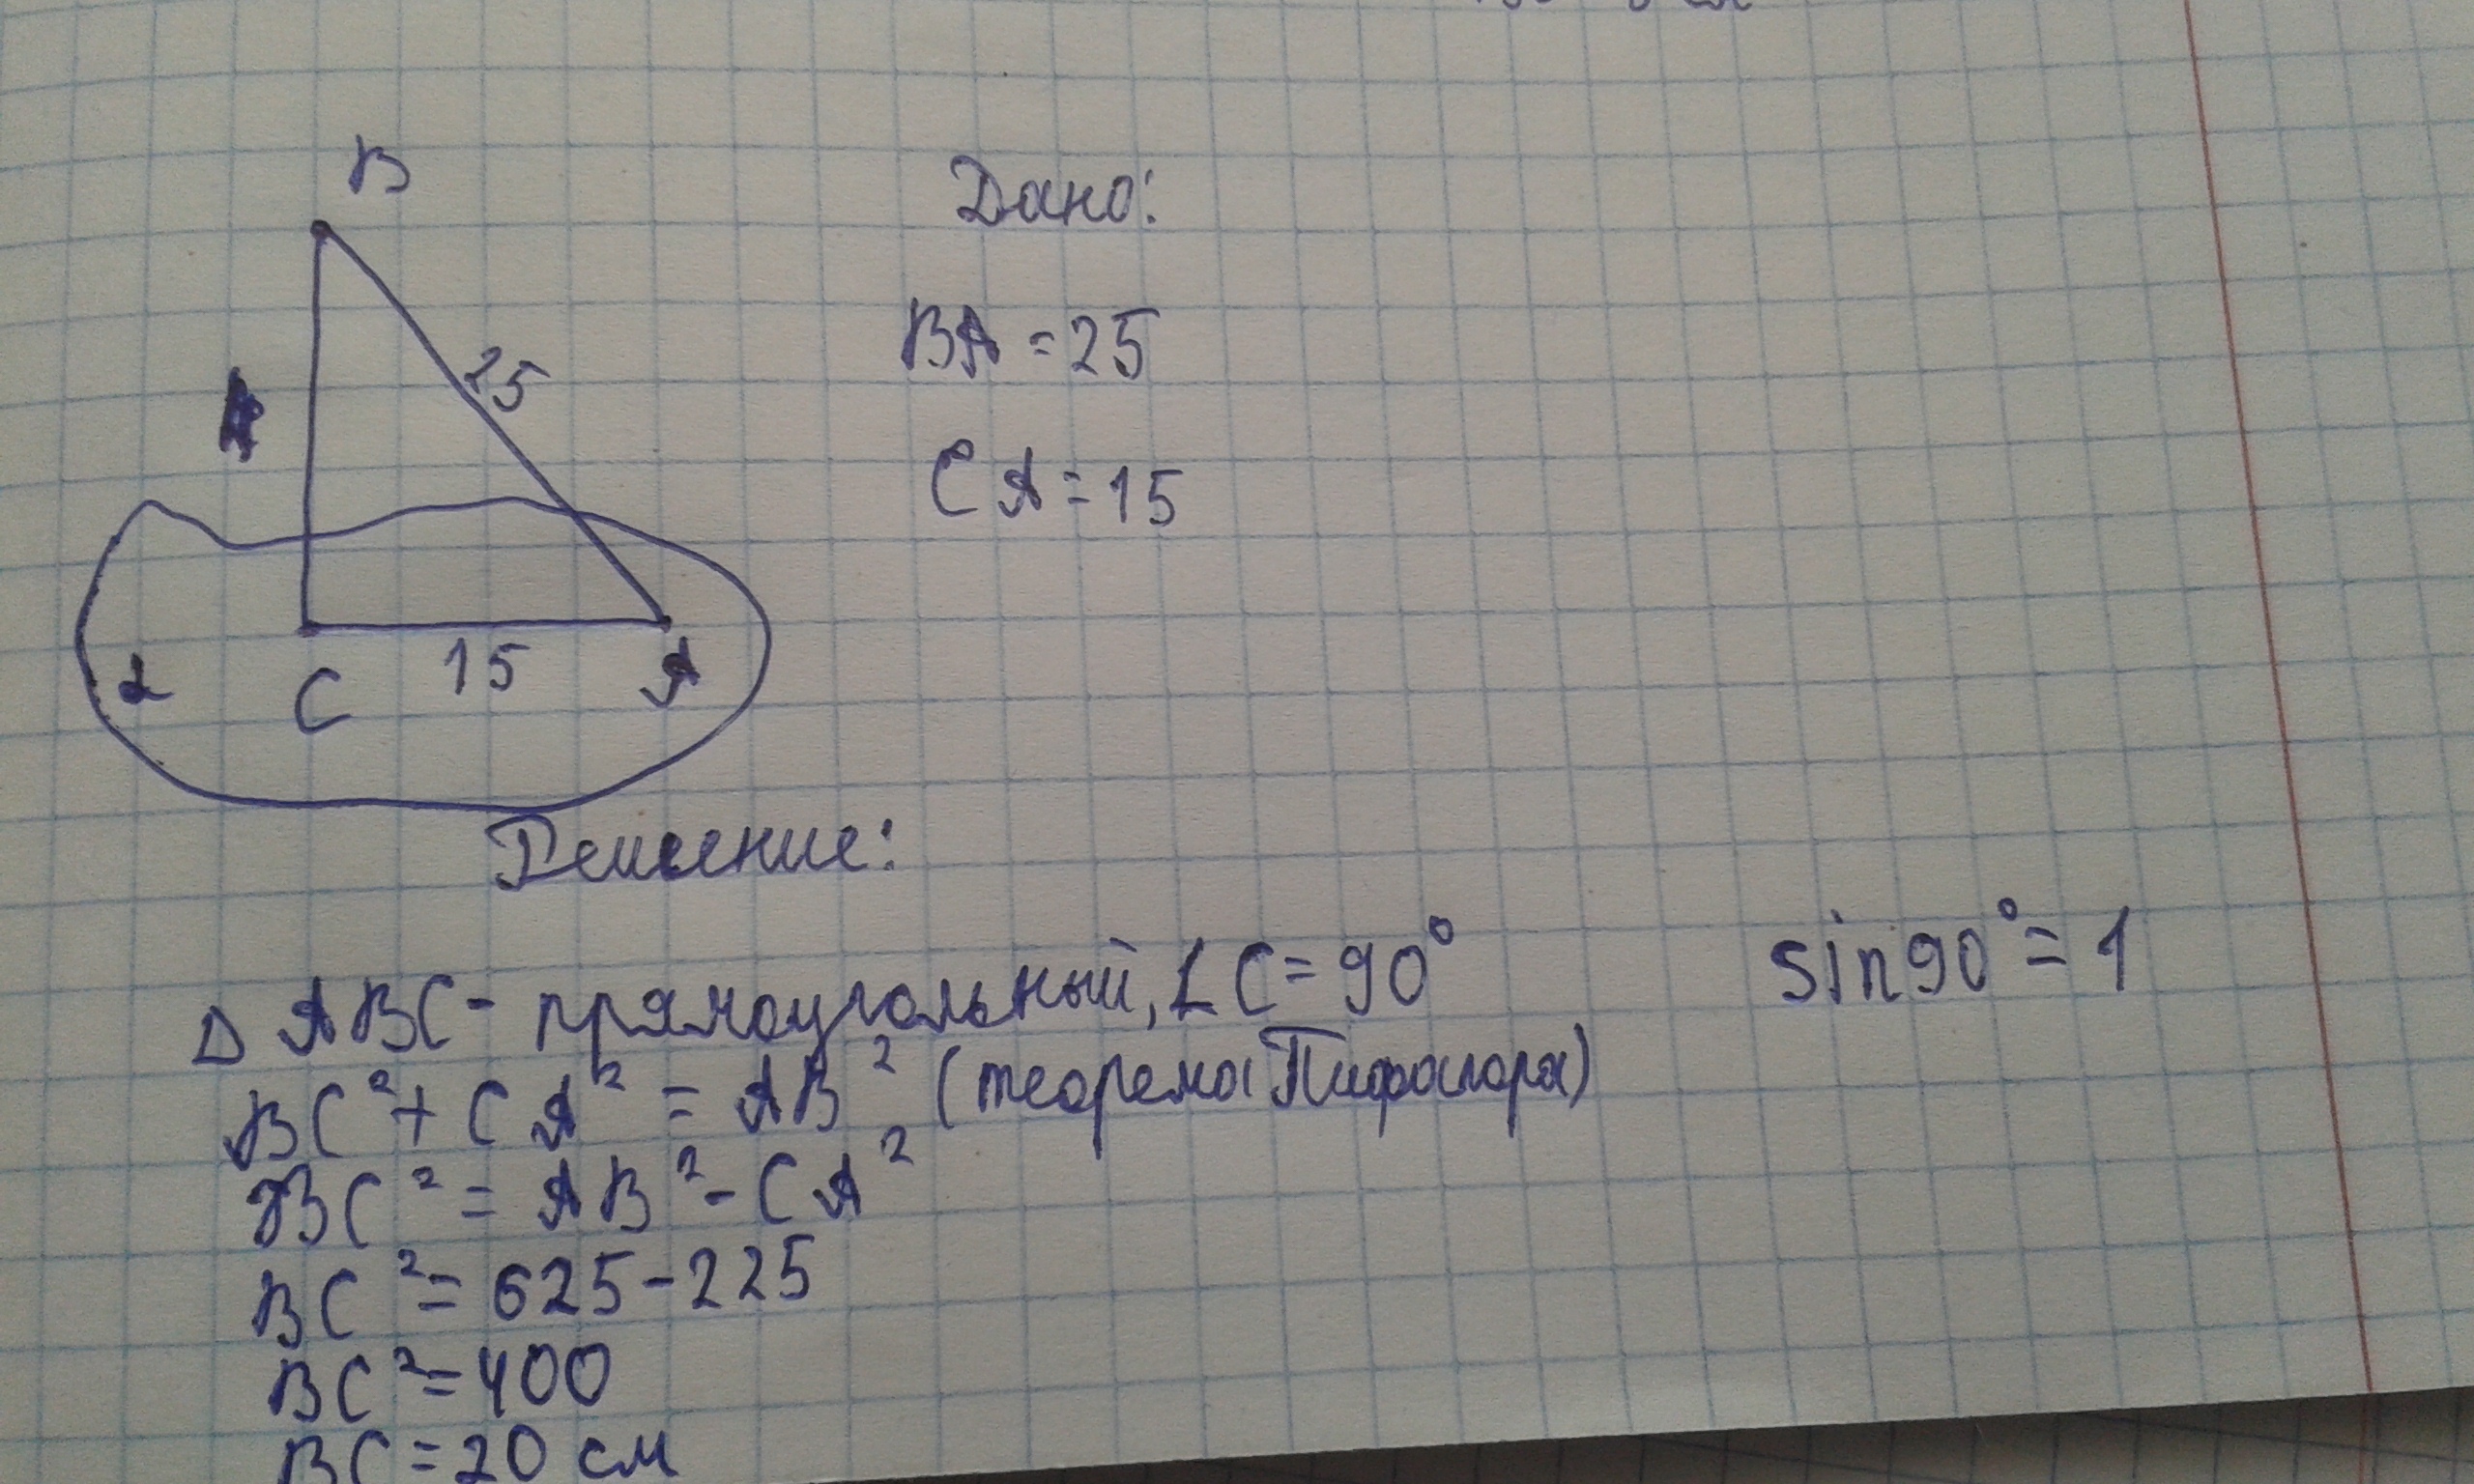 B
Дано:
BA = 25
25
CA = 15
15
α
C
A
Решение:
Δ ABC - прямоугольный, ∠C = 90°
sin 90° = 1
BC² + CA² = AB² (теорема Пифагора)
BC² = AB² - CA²
BC² = 625 - 225
BC² = 400
BC = 20 см